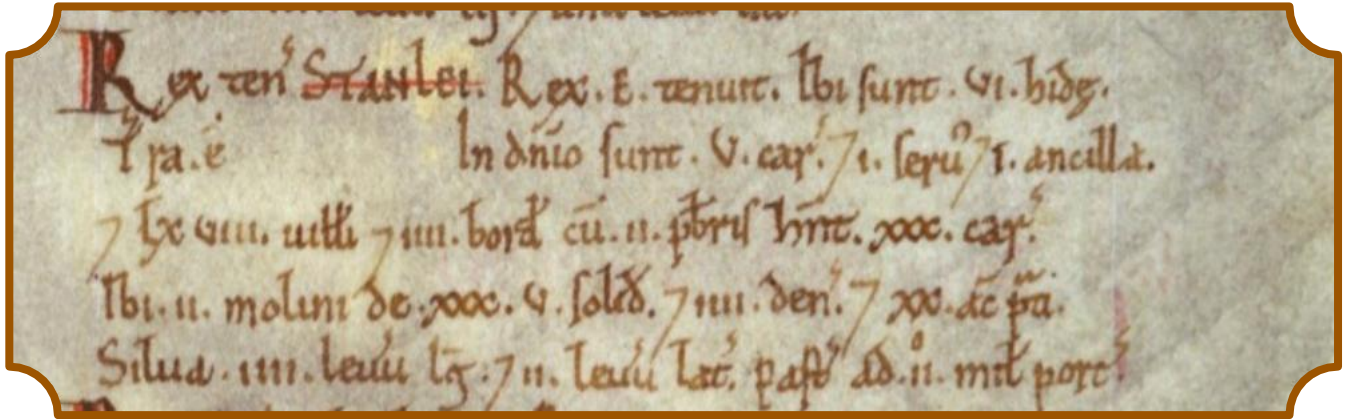 Rex ten' STANLEI. Rex. E. tenuit. Ibi sunt. vi. hidę.
T'ra. ē In dñio sunt. v. car'. ⁊ i. seruꝰ ⁊ i. ancilla.
⁊ lx viii. uilłi ⁊ iiii. bord' cū. ii. p̄bris hñt. xxx. car'.
Ibi. ii. molini de. xxx. v. solid'. ⁊ iiii. den'. ⁊ xx. ac̄ p̄ti.
Silua. iiii. leuu' lḡ. ⁊ ii. leuu' lat'. past' ad. ii. mił porc'.